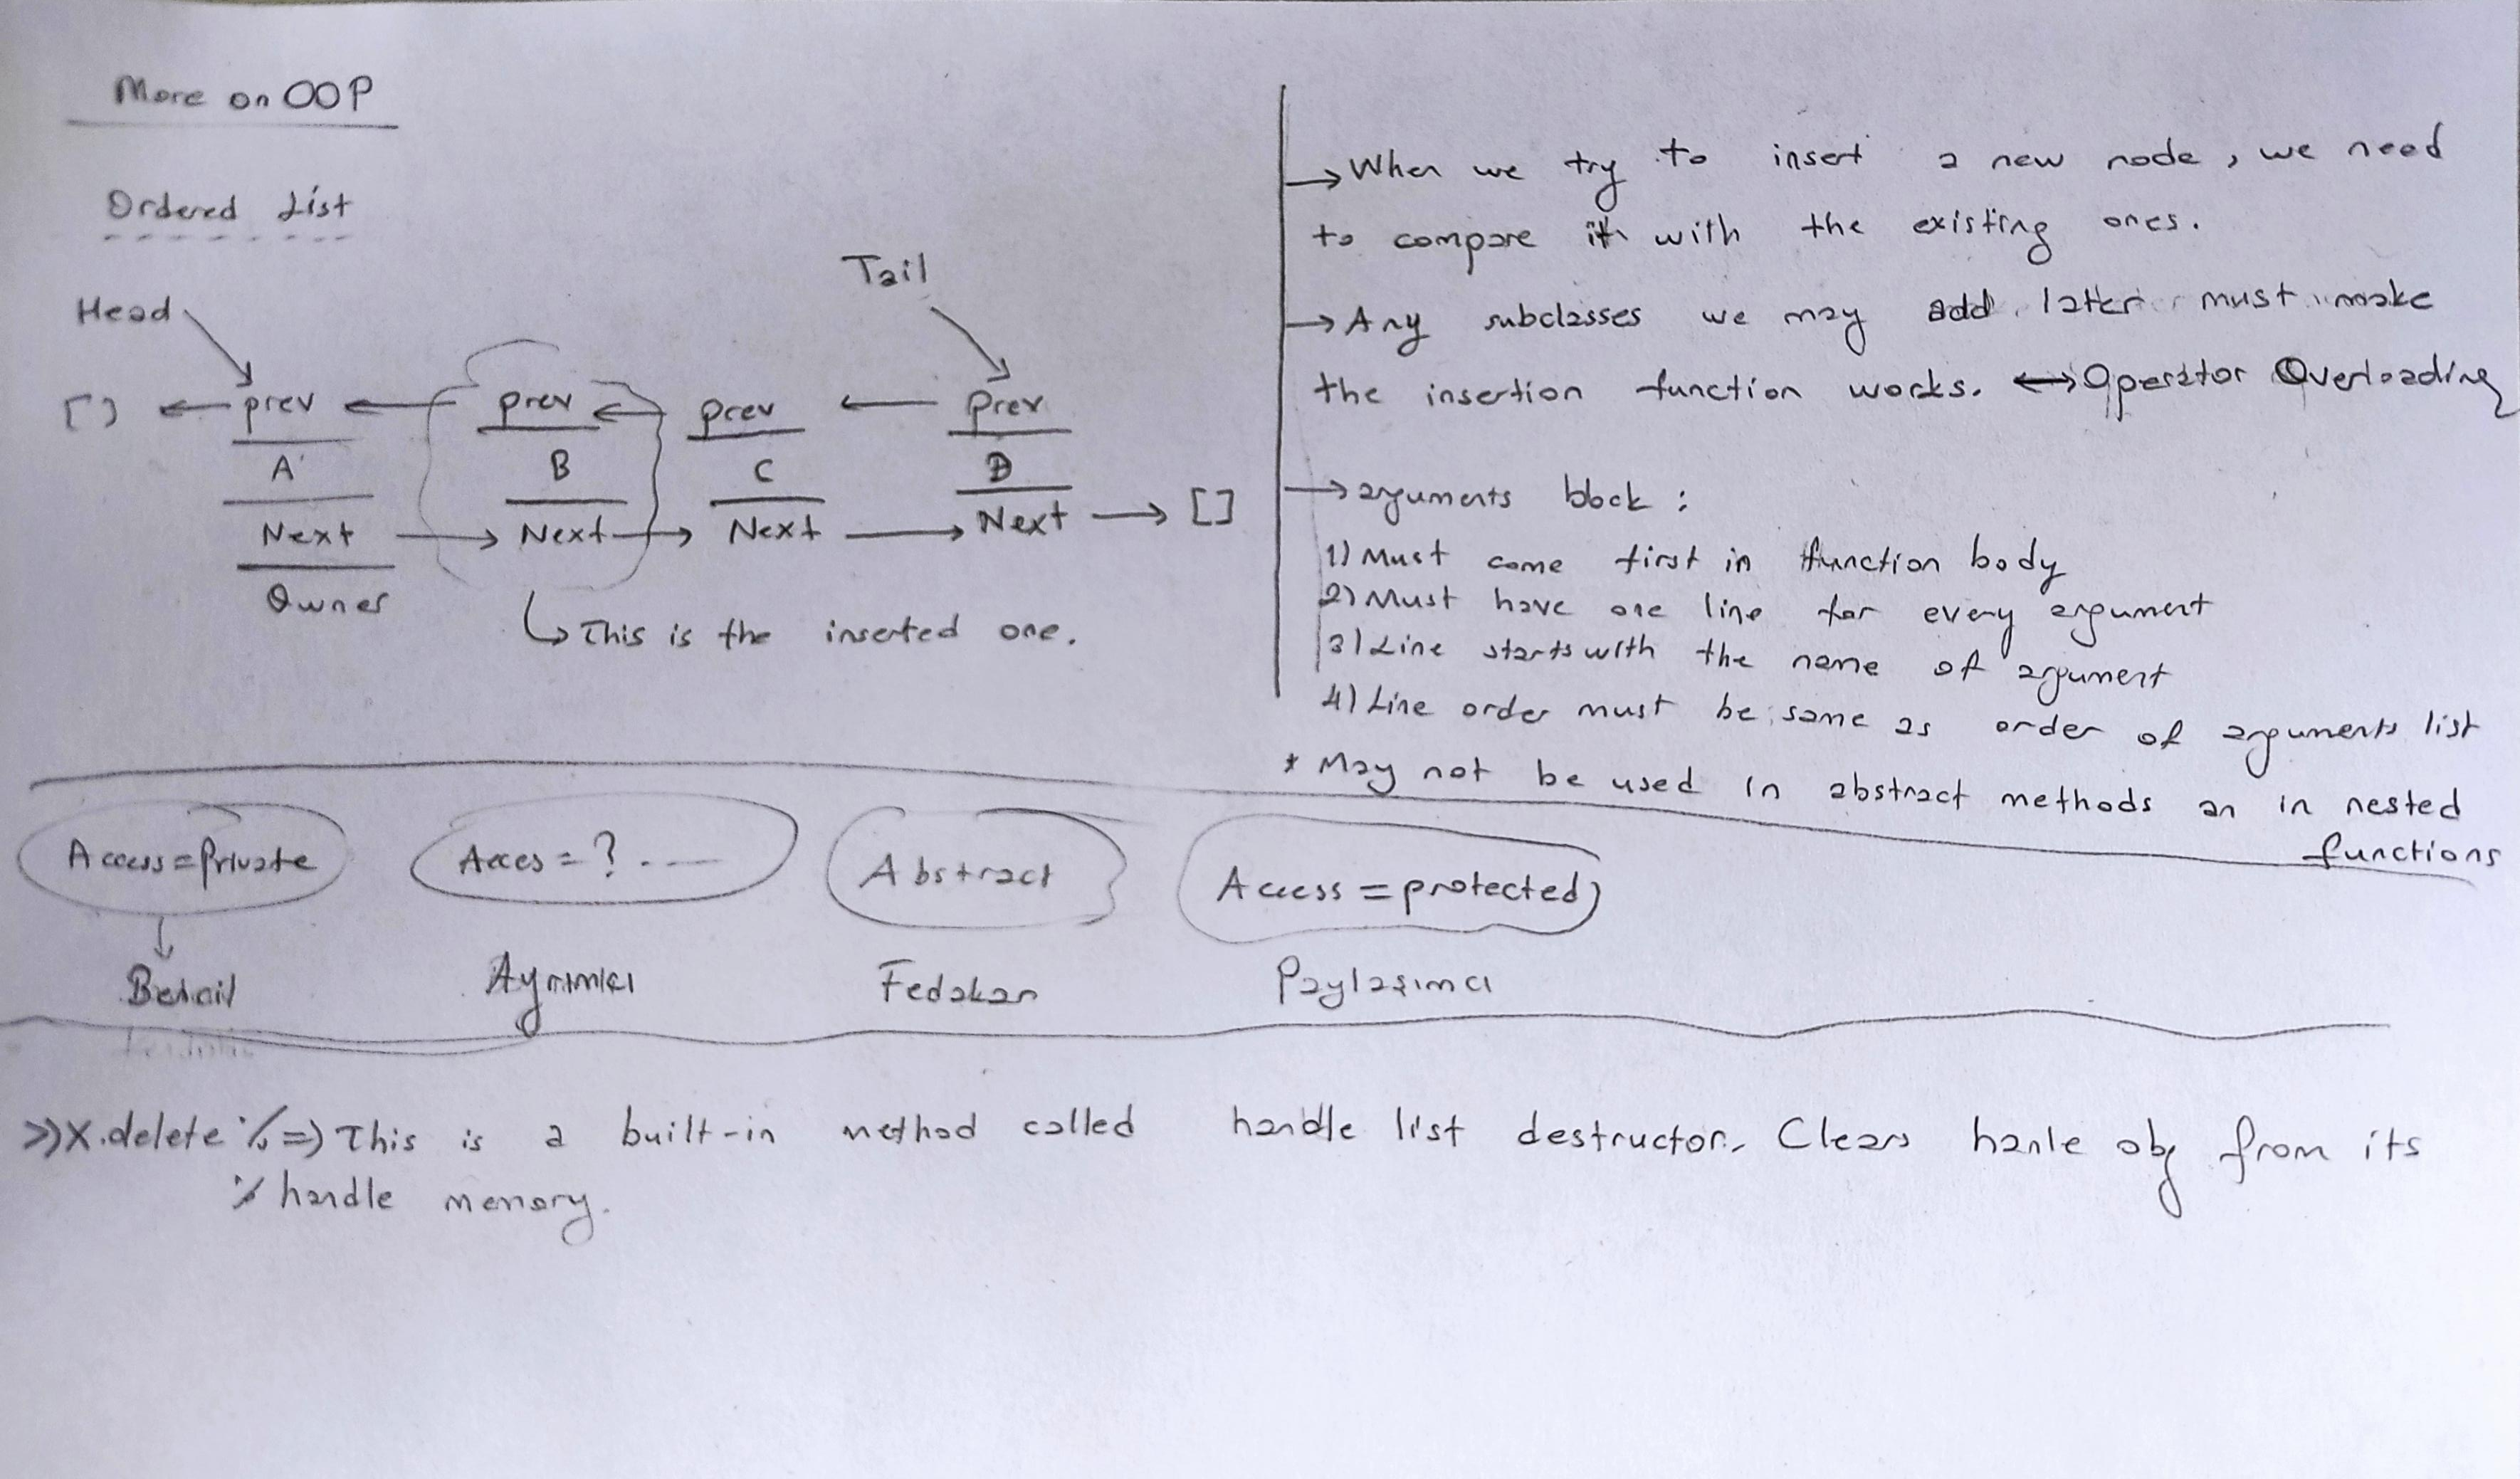 More on OOP
Ordered List
Head
Tail
[] prev prev prev prev
A B C D
Next Next Next Next []
Owner
This is the inserted one.
→ When we try to insert a new node, we need
to compare it with the existing ones.
→ Any subclasses we may add later must make
the insertion function works. ↔ Operator Overloading
→ arguments block :
1) Must come first in function body
2) Must have one line for every argument
3) Line starts with the name of argument
4) Line order must be same as order of arguments list
* May not be used in abstract methods an in nested
functions
Access = Private Acces = ? . --- Abstract Access = protected
Fedakar Paylaşımcı
>> X.delete % => This is a built-in method called handle list destructor. Clears hanle obj from its
% handle memory.